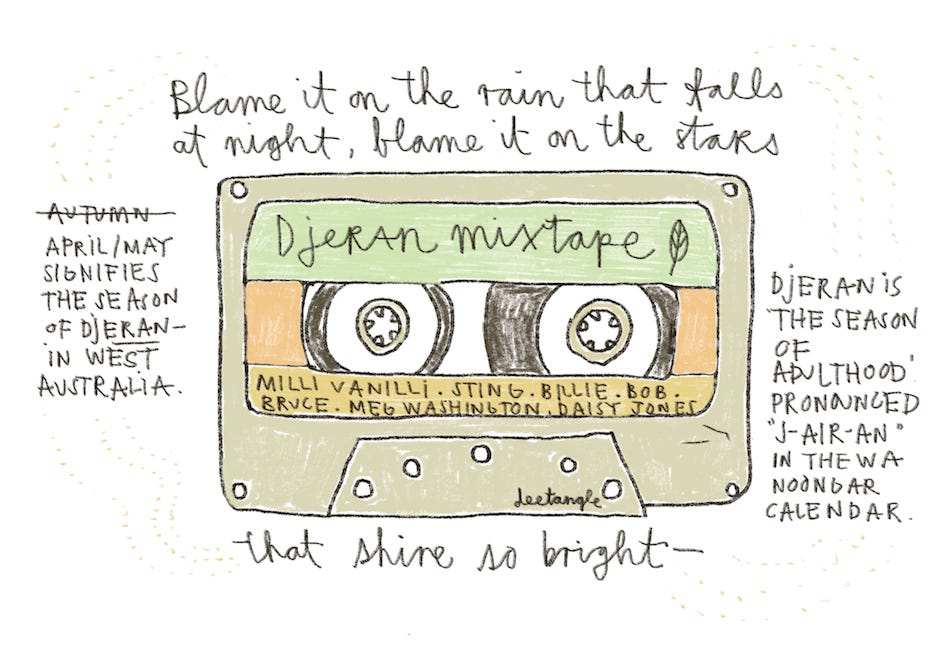 Blame it on the rain that falls
at night, blame it on the stars
AUTUMN
APRIL/MAY
SIGNIFIES
THE SEASON
OF DJERAN–
IN WEST
AUSTRALIA.
Djeran mixtape
MILLI VANILLI. STING. BILLIE. BOB.
BRUCE. MEG WASHINGTON. DAISY JONES
leetangle
DJERAN IS
'THE SEASON
OF
ADULTHOOD'.
PRONOUNCED
"J-AIR-AN"
IN THE WA
NOONGAR
CALENDAR.
that shine so bright—